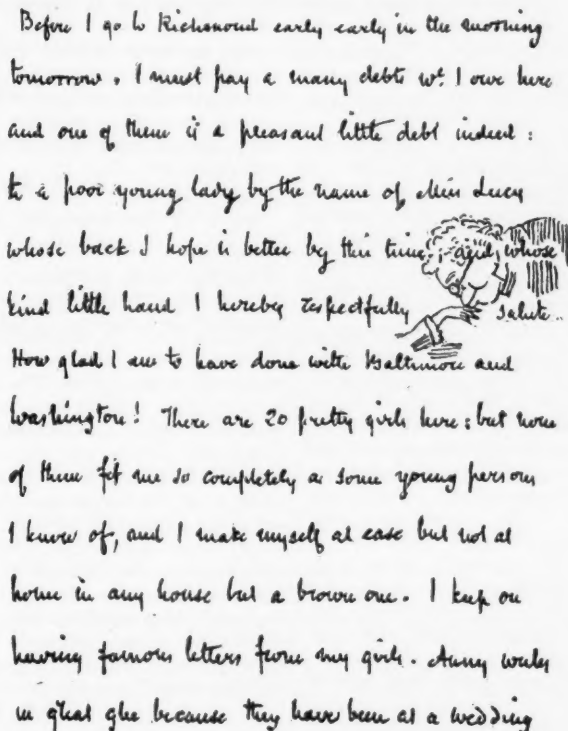 Before I go to Richmond early early in the morning
tomorrow. I must pay a many debts wh. I owe here
and one of them is a pleasant little debt indeed:
to a poor young lady by the name of Miss Lucy
whose back I hope is better by this time, and whose
kind little hand I hereby respectfully salute..
How glad I am to have done with Baltimore and
Washington! There are 20 pretty girls here: but none
of them fit me so completely as some young persons
I know of, and I make myself at ease but not at
home in any house but a brown one. I keep on
having famous letters from my girls. Anny writes
in great glee because they have been at a wedding